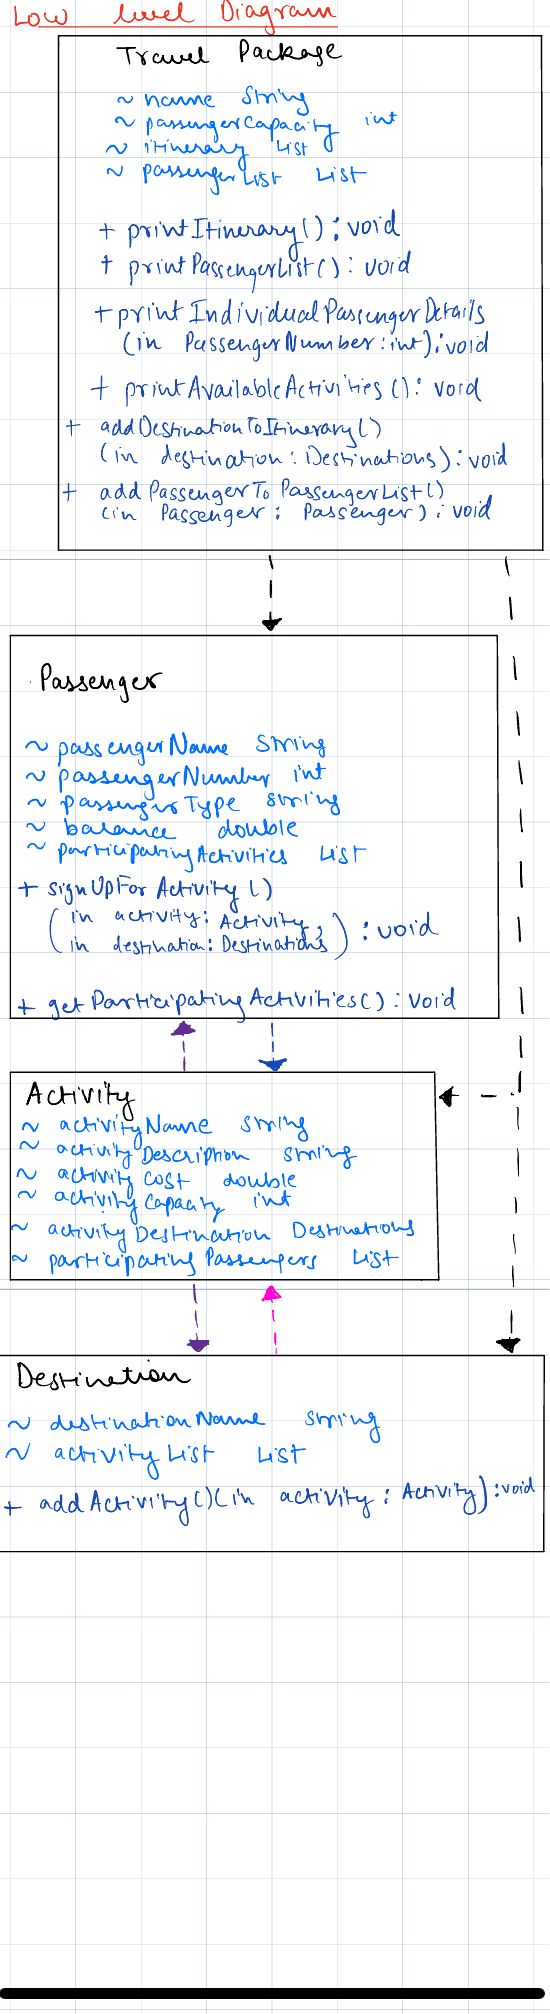 Low level Diagram
Travel Package
~ name String
~ passengerCapacity int
~ itinerary List
~ passengerList List
+ printItinerary() : void
+ printPassengerList() : void
+ printIndividualPassengerDetails
(in PassengerNumber : int) : void
+ printAvailableActivities () : void
+ addDestinationToItinerary()
(in destination : Destinations) : void
+ addPassengerToPassengerList()
(in Passenger : Passenger) : void
Passenger
~ passengerName String
~ passengerNumber int
~ passengerType string
~ balance double
~ participatingActivities List
+ signUpForActivity ()
(in activity : Activity,
in destination : Destinations) : void
+ getParticipatingActivities() : void
Activity
~ activityName string
~ activityDescription string
~ activity cost double
~ activity capacity int
~ activityDestination Destinations
~ participatingPassengers List
Destination
~ destinationName string
~ activityList List
+ addActivity()(in activity : Activity) : void